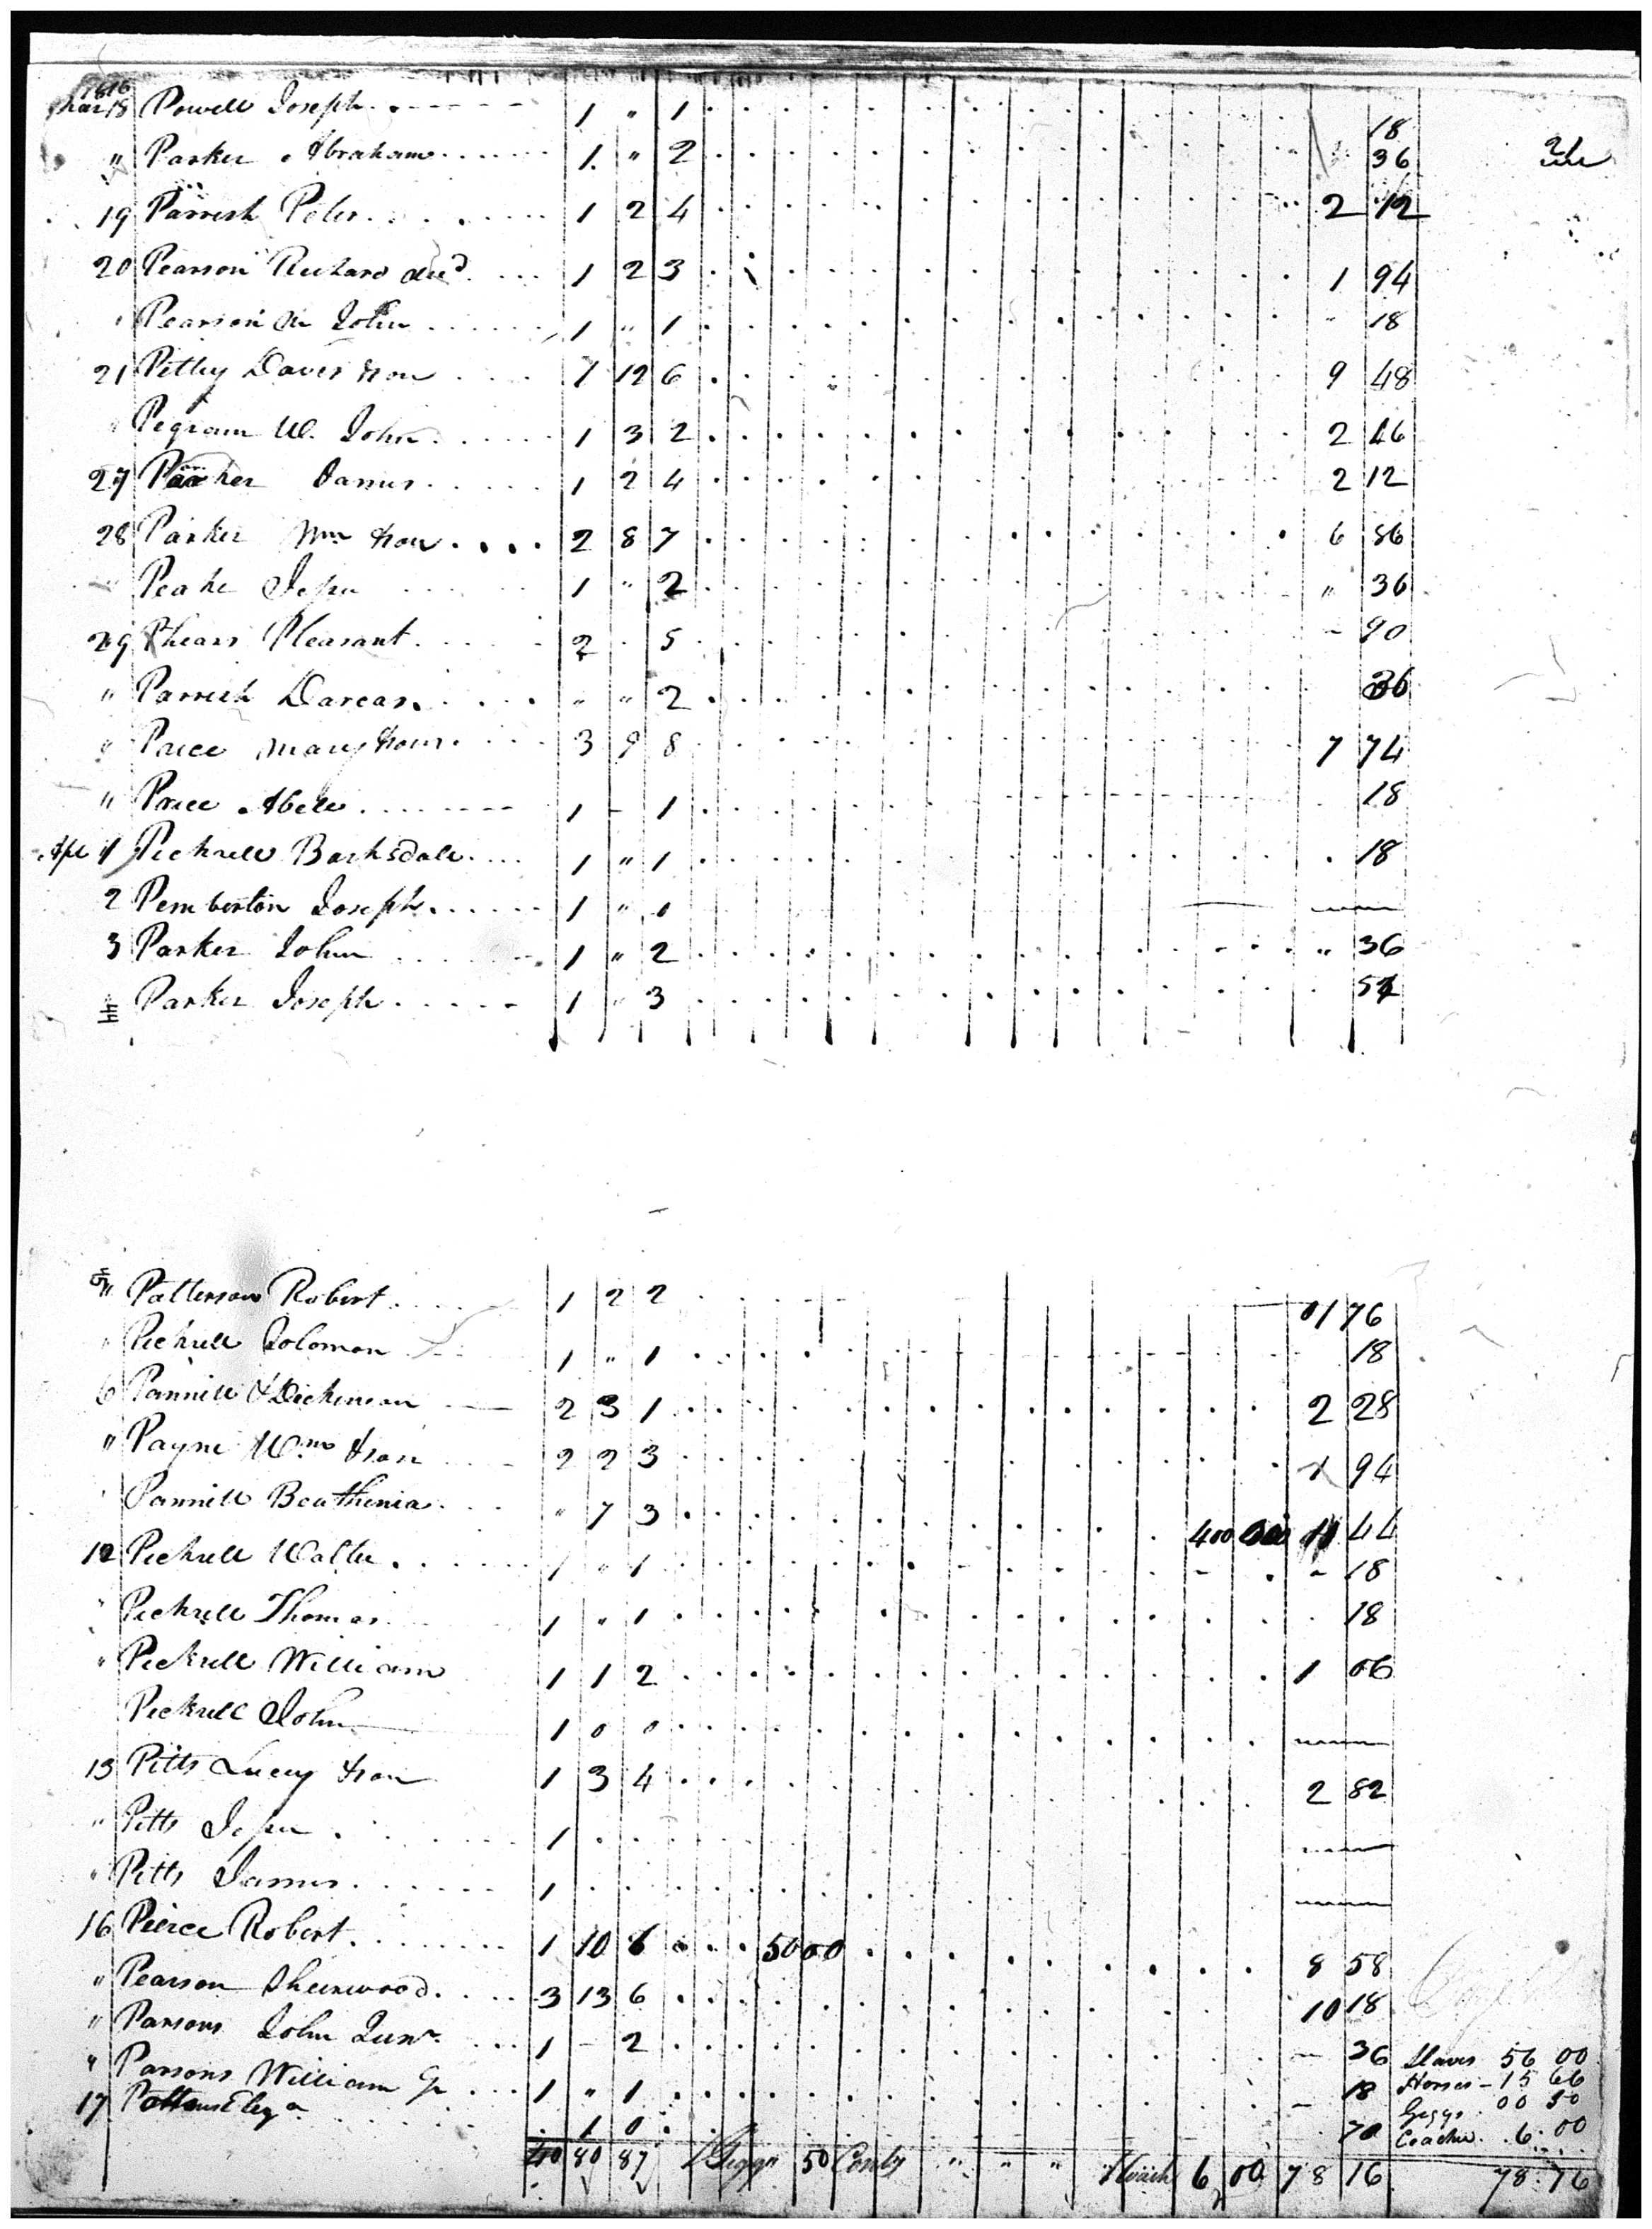 1816
Mar 18 Powell Joseph 1 " 1 18
" Parker Abraham 1 " 2 36 21
19 Parrish Peter 1 2 4 2 12
20 Pearson Richard 1 2 3 1 94
Pearson John 1 " 1 " 18
21 Davis 7 12 6 9 48
Pegram W. John 1 3 2 2 46
27 Parker James 1 2 4 2 12
28 Parker Wm 2 8 7 6 86
" Peake 1 " 2 " 36
29 Pleasant 2 5 90
" Parrish Darcas " " 2 36
" Price Mary 3 9 8 7 74
" Price Abell 1 - 1 18
Apl 1 Pickrell Barksdale 1 " 1 18
2 Pemberton Joseph 1 " 0
3 Parker John 1 " 2 " 36
Parker Joseph 1 " 3 54
5th Patterson Robert 1 2 2 1 76
Pickrell Solomon 1 " 1 18
6 Pannill & Dickinson 2 3 1 2 28
" Payne Wm 2 2 3 1 94
Pannill Beathenia " 7 3 400 11 44
12 Pickrell Walter 1 " 1 - 18
" Pickrell Thomas 1 " 1 18
" Pickrell William 1 1 2 1 06
Pickrell John 1 0 0
13 Pitts Lucy 1 3 4 2 82
" Pitts 1
" Pitts James 1
16 Peirce Robert 1 10 6 50 00 8 58
" Pearson Sherwood 3 13 6 10 18
" Parsons John Junr 1 - 2 - 36 Slaves 56 00
" Parsons William 1 " 1 - 18 Horses - 15 66
17 1 0 70 Giggs 00 50
Coaches 6 00
40 80 87 1 Gigg 50 Cents " " " 1 Coach 6 00 78 16 78.76